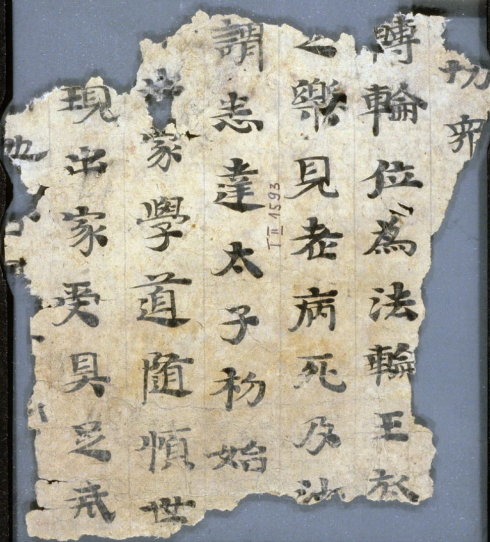 切眾
轉輪位為法輪王於
之樂見老病死及沙
T II 1593
謂悉達太子初始
出家學道随順世
現出家受具足戒